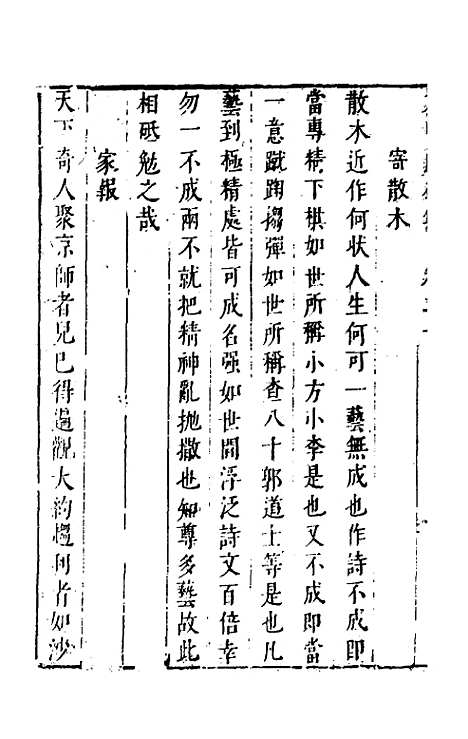 寄散木
散木近作何狀人生何可一藝無成也作詩不成即
當專精下棋如世所稱小方小李是也又不成即當
一意蹴踘搊彈如世所稱查八十郭道士等是也凡
藝到極精處皆可成名强如世間浮泛詩文百倍幸
勿一不成兩不就把精神亂拋撒也知尊多藝故此
相砥勉之哉
家報
天下奇人聚京師者兄已得遍觀大約趨利者如沙